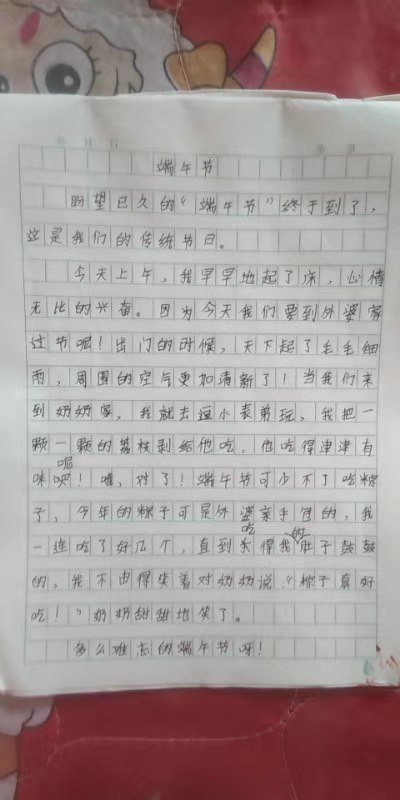 端午节
盼望已久的“端午节”终于到了，
这是我们的传统节日。
今天上午，我早早地起了床，心情
无比的兴奋。因为今天我们要到外婆家
过节呢！出门的时候，天下起了毛毛细
雨，周围的空气更加清新了！当我们来
到奶奶家，我就去逗小表弟玩，我把一
颗一颗的荔枝剥给他吃，他吃得津津有
味呢！嘿，对了！端午节可少不了吃粽
子，今年的粽子可是外婆亲手包的，我
一连吃了好几个，直到吃得我的肚子鼓鼓
的，我不由得笑着对奶奶说：“粽子真好
吃！”奶奶甜甜地笑了。
多么难忘的端午节呀！